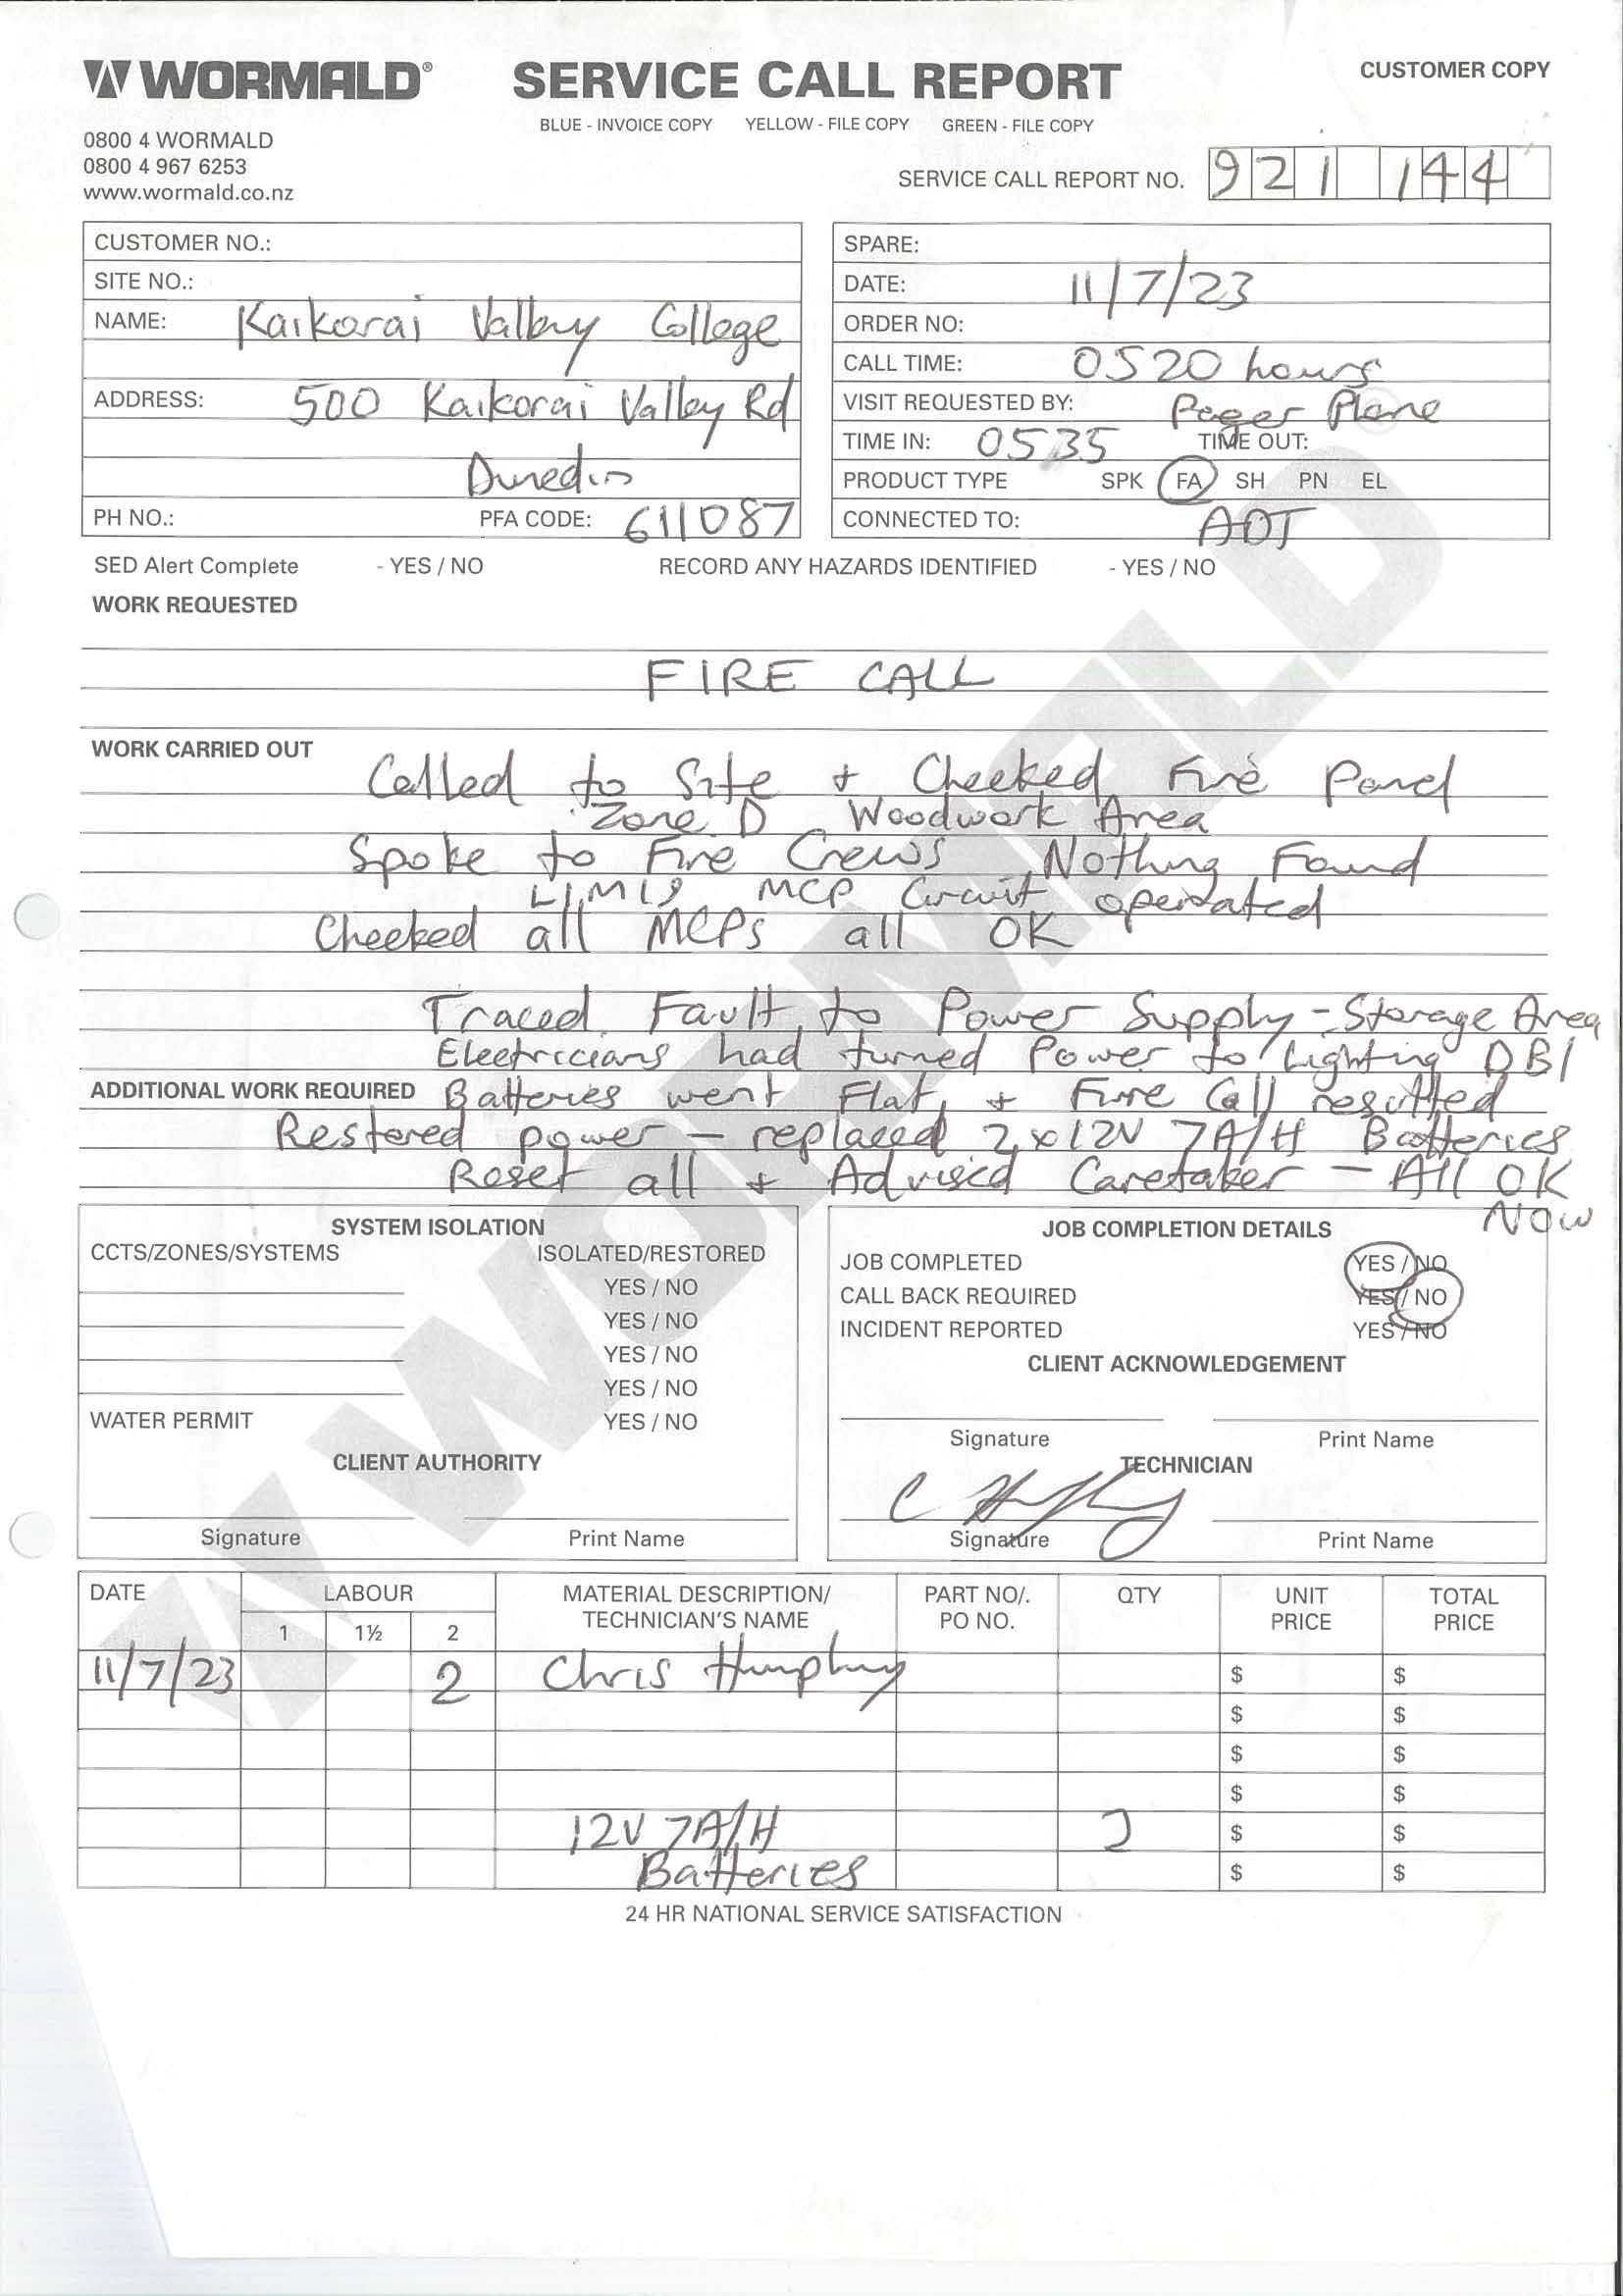 WORMALD®
SERVICE CALL REPORT
CUSTOMER COPY
BLUE - INVOICE COPY YELLOW - FILE COPY GREEN - FILE COPY
0800 4 WORMALD
0800 4 967 6253
www.wormald.co.nz
SERVICE CALL REPORT NO. 921 144
CUSTOMER NO.:
SITE NO.:
NAME: Kaikorai Valley College
ADDRESS: 500 Kaikorai Valley Rd
Dunedin
PH NO.: PFA CODE: 611087
SPARE:
DATE: 11/7/23
ORDER NO:
CALL TIME: 0520 hours
VISIT REQUESTED BY: Pager
TIME IN: 0535 TIME OUT:
PRODUCT TYPE SPK FA SH PN EL
CONNECTED TO: ADT
SED Alert Complete - YES / NO RECORD ANY HAZARDS IDENTIFIED - YES / NO
WORK REQUESTED
FIRE CALL
WORK CARRIED OUT
Called to Site + Checked Fire Panel
Zone D Woodwork Area
Spoke to Fire Crews Nothing Found
MCP Circuit operated
Checked all MCPs all OK
Traced Fault to Power Supply - Storage Area
Electricians had turned Power to Lighting DB1
ADDITIONAL WORK REQUIRED Batteries went Flat + Fire Call resulted
Restored power - replaced 2x12V 7A/H Batteries
Reset all + Advised Caretaker - All OK
NOW
SYSTEM ISOLATION
CCTS/ZONES/SYSTEMS ISOLATED/RESTORED
YES / NO
YES / NO
YES / NO
YES / NO
WATER PERMIT YES / NO
CLIENT AUTHORITY
Signature Print Name
JOB COMPLETION DETAILS
JOB COMPLETED YES / NO
CALL BACK REQUIRED YES / NO
INCIDENT REPORTED YES / NO
CLIENT ACKNOWLEDGEMENT
Signature Print Name
TECHNICIAN
Signature Print Name
DATE LABOUR MATERIAL DESCRIPTION/ PART NO/. QTY UNIT TOTAL
TECHNICIAN'S NAME PO NO. PRICE PRICE
1 1½ 2
11/7/23 2 Chris Humphrey $ $
$ $
$ $
$ $
12V 7A/H 2 $ $
Batteries $ $
24 HR NATIONAL SERVICE SATISFACTION
WORMALD